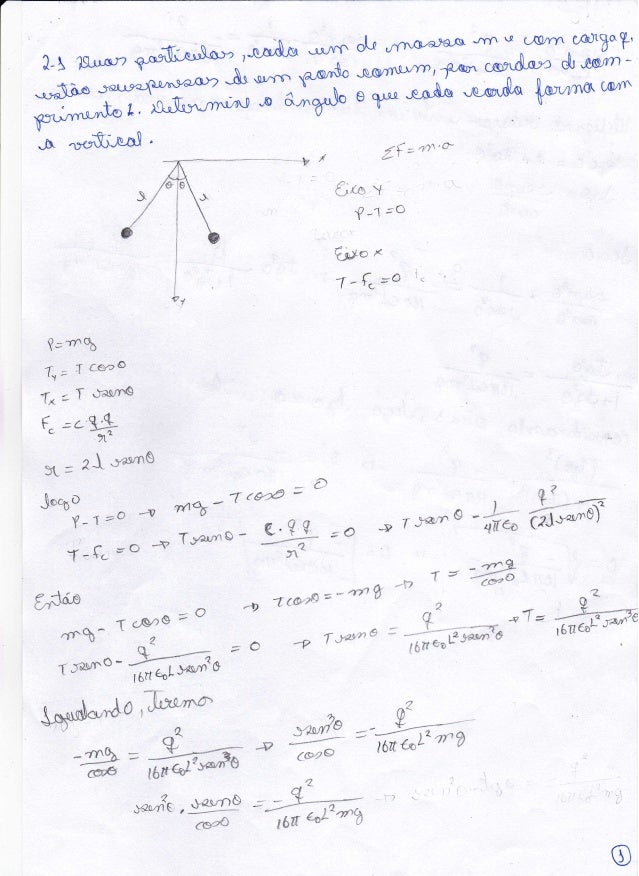 2-1 Duas partículas, cada um de massa m e com carga q.
estão suspensas de um ponto comum, por cordas de com-
primento l. Determine o ângulo θ que cada corda forma com
a vertical.
x
ΣF = m·a
θ θ
l l
y
Eixo y
P-T=0
Eixo x
T-Fc=0
P=mg
Ty = T cosθ
Tx = T senθ
Fc = c q·q / r²
r = 2l senθ
logo
P-T=0 → mg - T cosθ = 0
T-Fc=0 → T senθ - c·q q / r² = 0 → T senθ - 1/4πε0 q²/(2l senθ)²
Então
mg - T cosθ = 0 → T cosθ = -mg → T = -mg/cosθ
T senθ - q²/16πε0L² sen²θ = 0 → T senθ = q²/16πε0L² sen²θ → T = q²/16πε0L² sen³θ
Igualando, Teremos
-mg/cosθ = q²/16πε0L² sen³θ → sen³θ/cosθ = -q²/16πε0L² mg
sen²θ · senθ/cosθ = -q²/16πε0L² mg
1